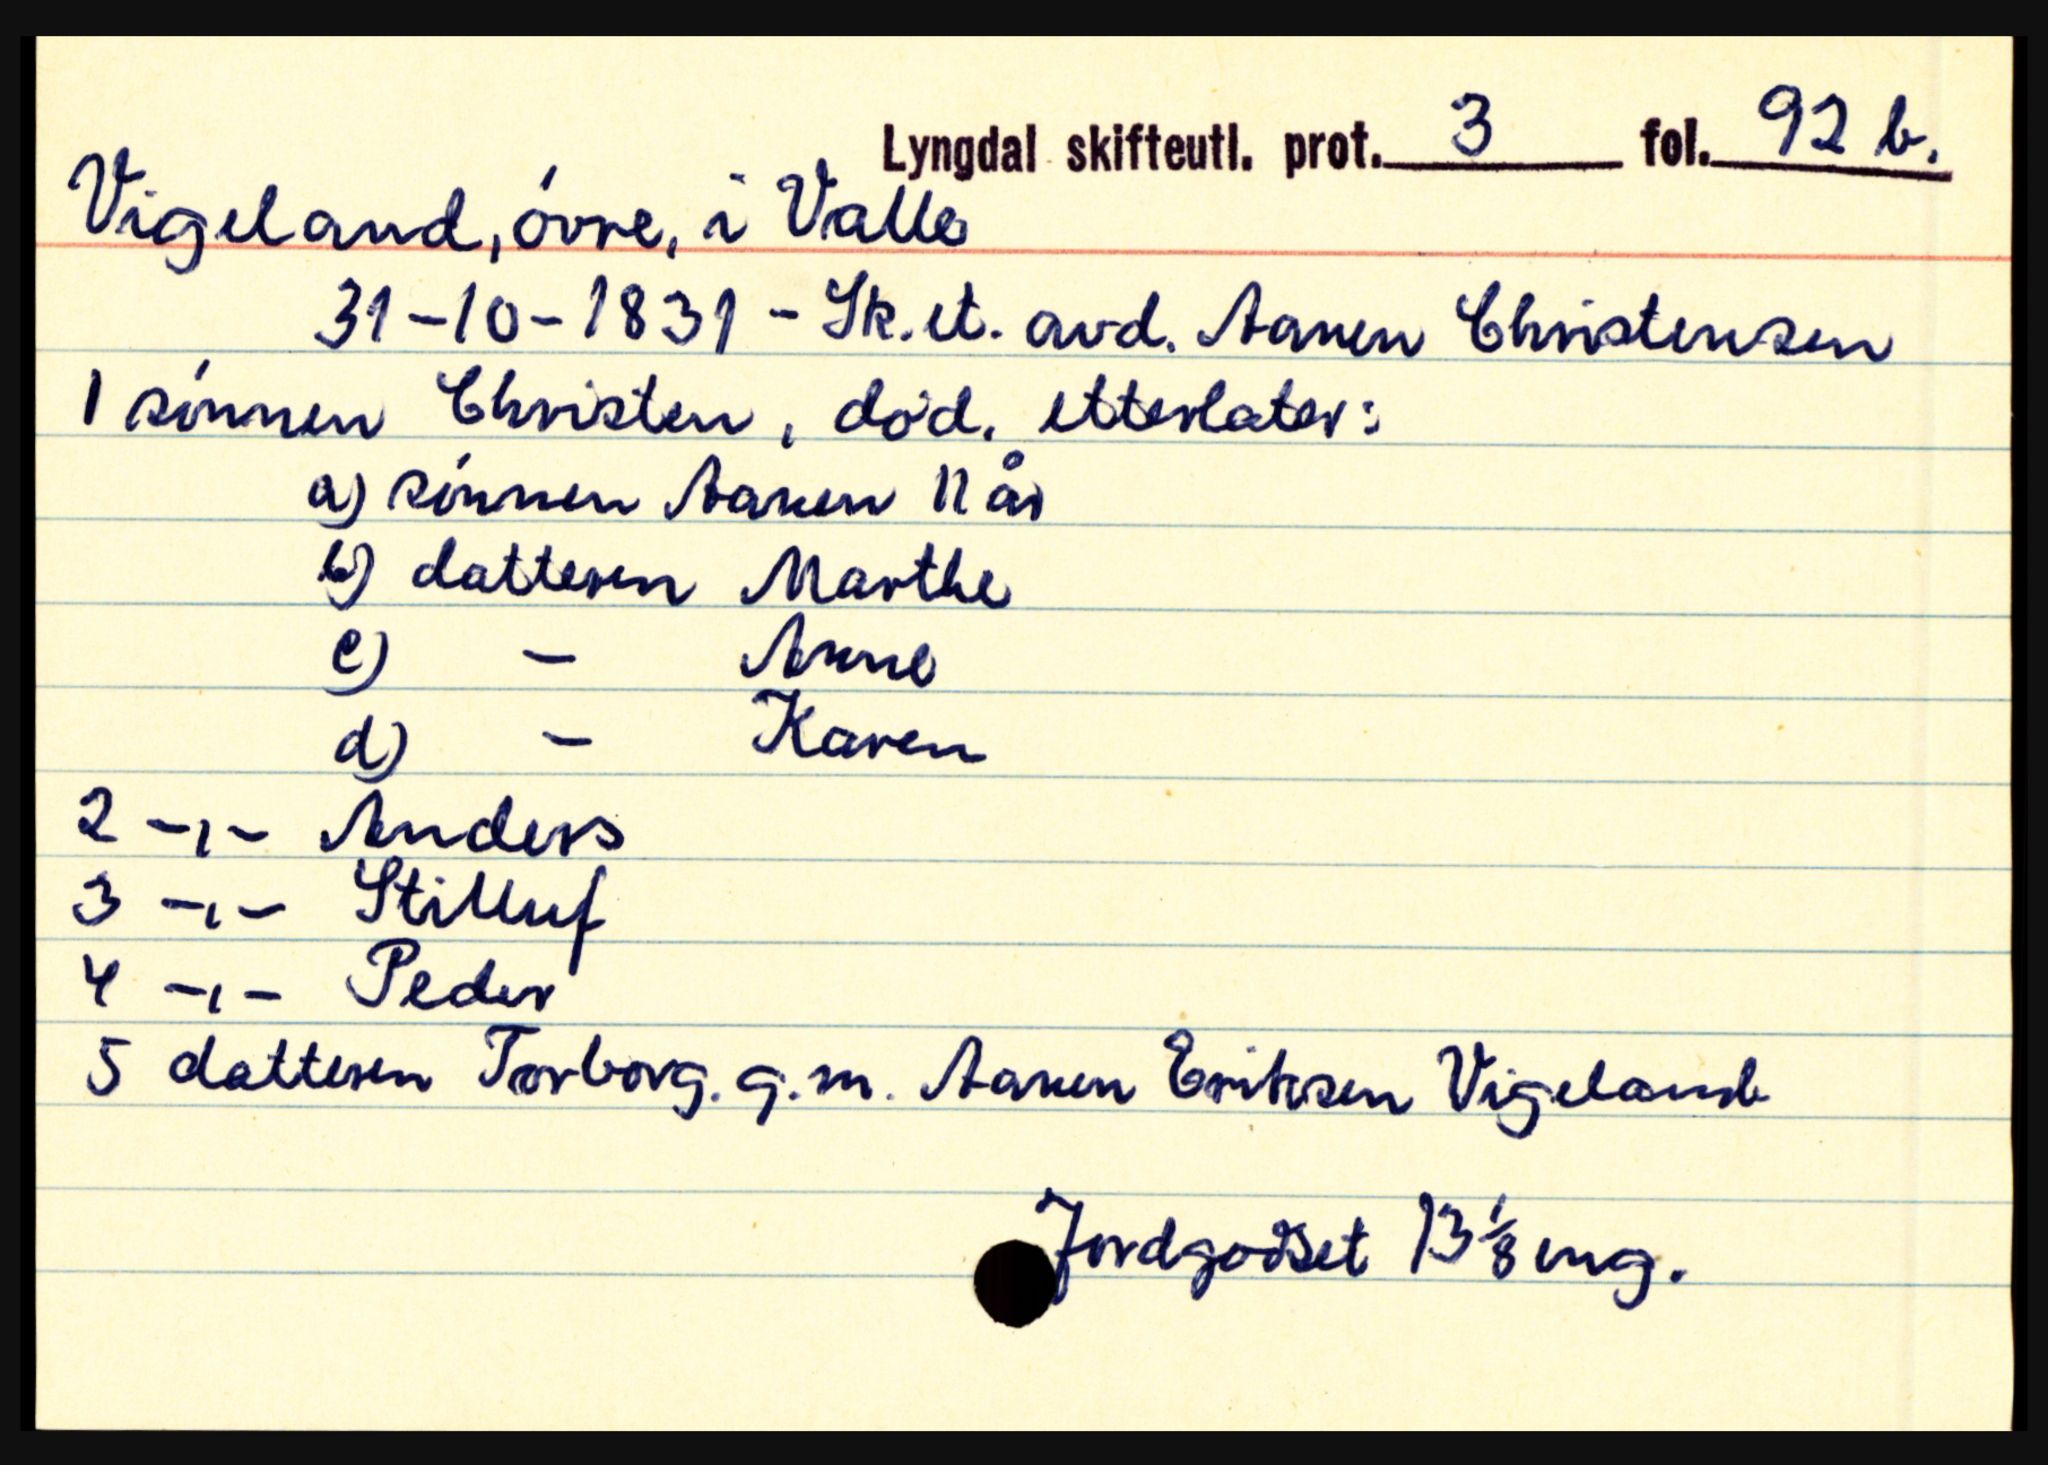 Lyngdal skifteutl. prot. 3 fol. 92 b.
Vigeland, óvre, i Valle
31-10-1831 - Sk. et. avd. Aanen Christensen
1 sónnen Christen, död. etterlater:
a) sónnen Aanen 11 år
b) datteren Marthe
c) - Anne
d) - Karen
2 -,- Anders
3 -,- Stilluf
4 -,- Peder
5 datteren Torborg. g.m. Aanen Eriksen Vigeland
Jordgodset 13 1/8 eng.